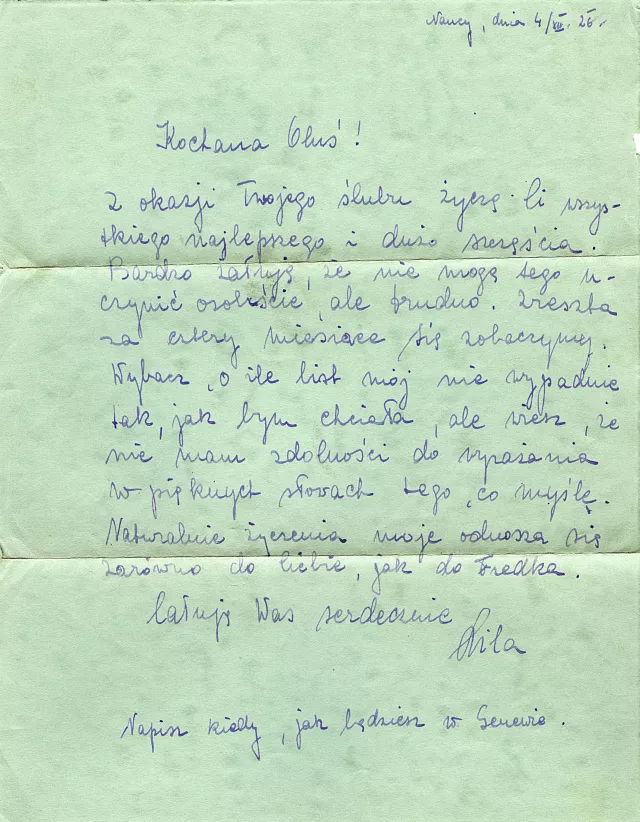 Nancy, dnia 4/XII. 26.
Kochana Oluś!
Z okazji Twojego ślubu życzę Ci wszys-
tkiego najlepszego i dużo szczęścia.
Bardzo żałuję, że nie mogę tego u-
czynić osobiście, ale trudno. Zresztą
za cztery miesiące się zobaczymy.
Wybacz, o ile list mój nie wypadnie
tak, jak bym chciała, ale wiesz, że
nie mam zdolności do wyrażania
w pięknych słowach tego, co myślę.
Naturalnie życzenia moje odnoszą się
zarówno do Ciebie, jak do Fredka.
Całuję Was serdecznie
Napisz kiedy, jak będziesz w Genewie.